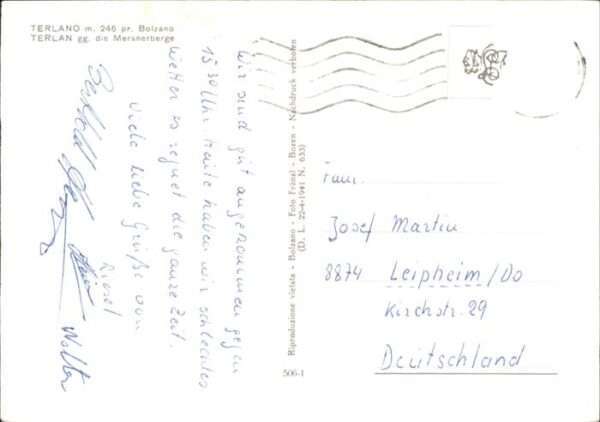 TERLANO m. 246 pr. Bolzano
TERLAN gg. die Mersnerberge
Wir sind gut angekommen gegen
15 30 Uhr Heute haben wir schlechtes
Wetter es regnet die ganze Zeit.
Viele liebe Grüße von
Liesel
Walter
Riproduzione vietata - Bolzano - Foto Fränzl - Bozen - Nachdruck verboten
(D. L. 22-4-1941 N. 633)
506-1
Fam.
Josef Martin
8874 Leipheim/Do
Kirchstr. 29
Deutschland